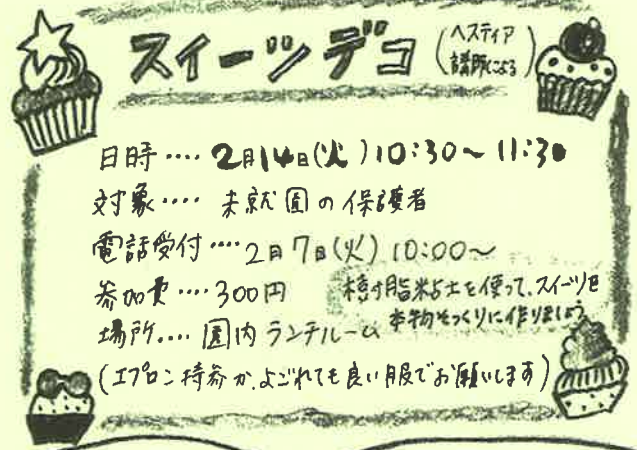 スイーツデコ
(ヘスティア
講師による)
日時‥‥2月14日(火)10:30～11:30
対象‥‥未就園の保護者
電話受付‥‥2月7日(火)10:00～
参加費‥‥300円
樹脂粘土を使って、スイーツを
本物そっくりに作りましょう
場所‥‥園内ランチルーム
(エプロン持参か、よごれても良い服でお願いします)